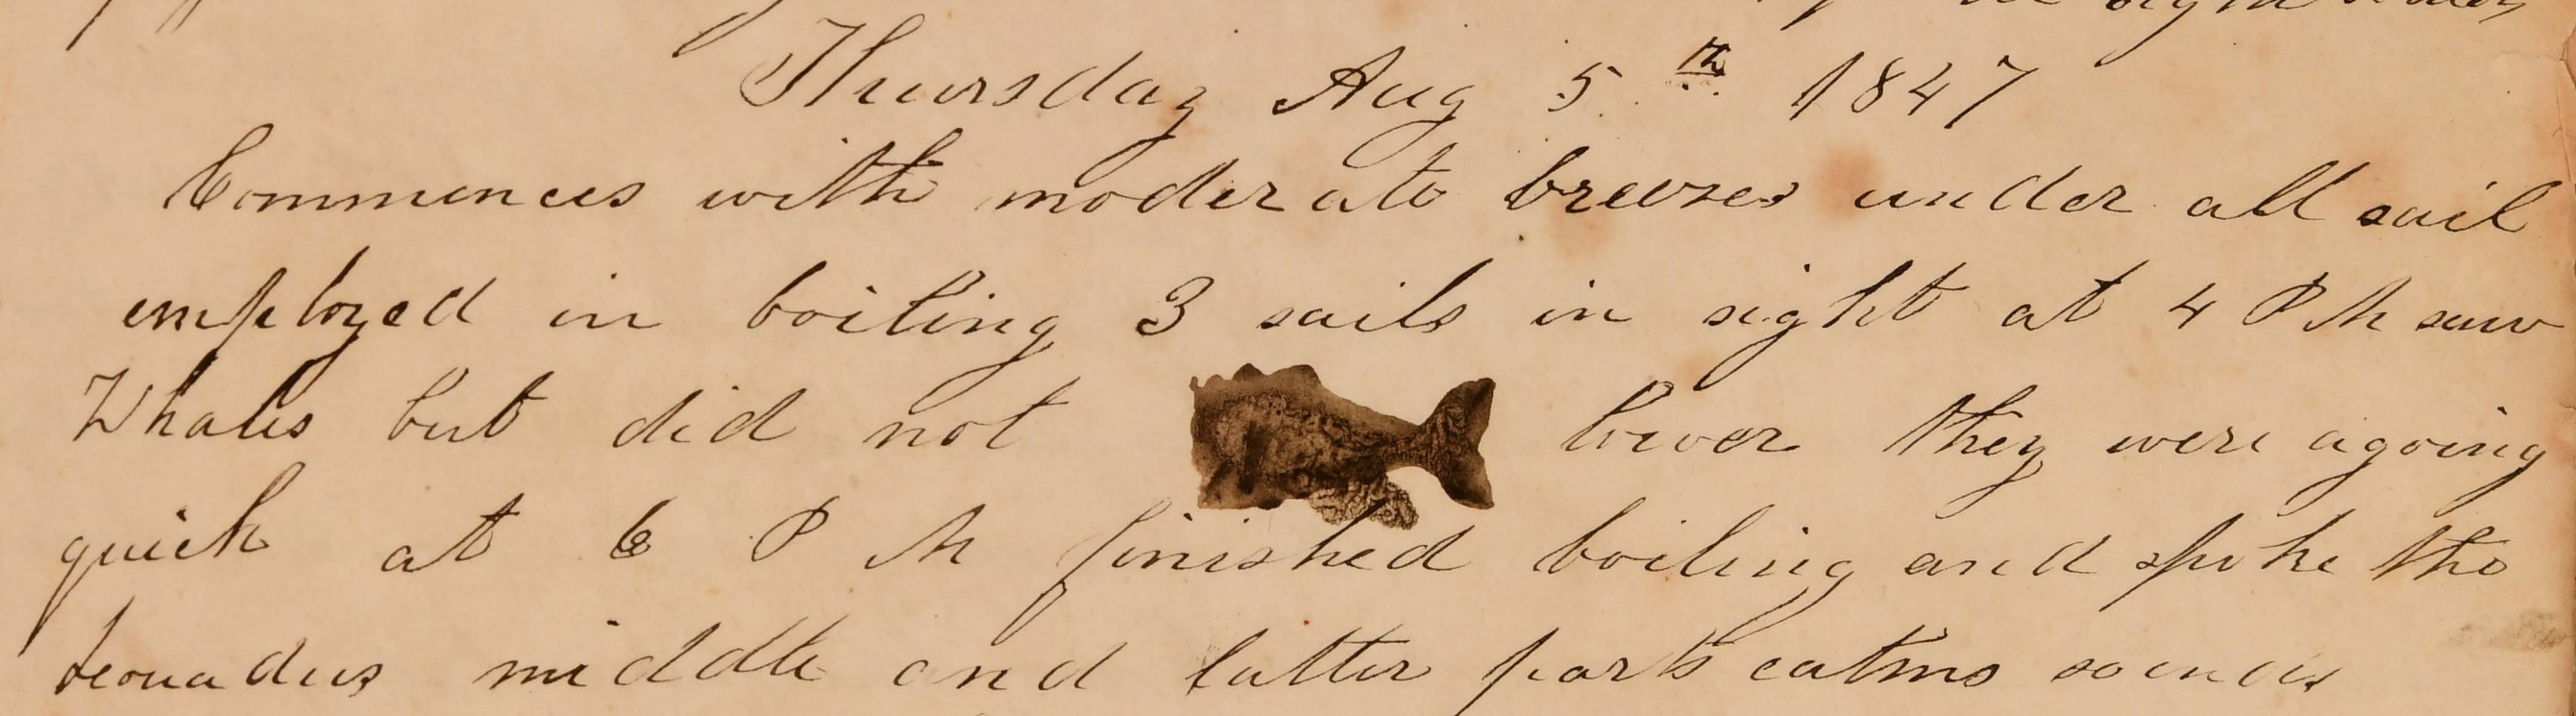 Thursday Aug 5th 1847
Commences with moderate breezes under all sail
employed in boiling 3 sails in sight at 4 P M saw
Whales but did not lower they were agoing
quick at 6 P M finished boiling and spoke the
middle and latter parts calms